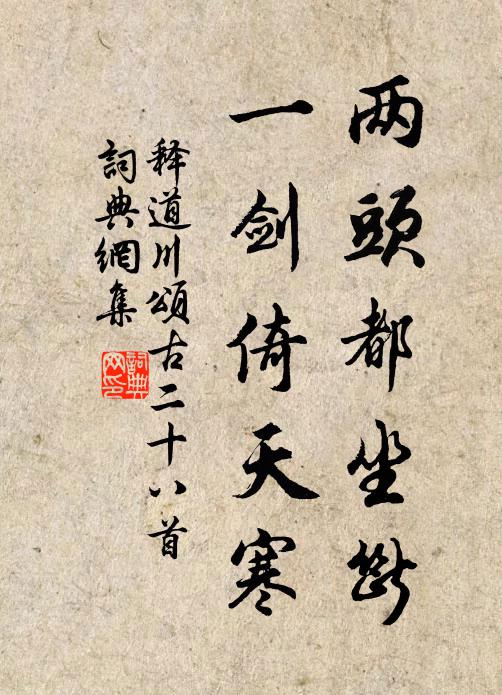 两頭都坐斷
一劍倚天寒
释道川頌古二十八首
詞典網集
詞典
网印